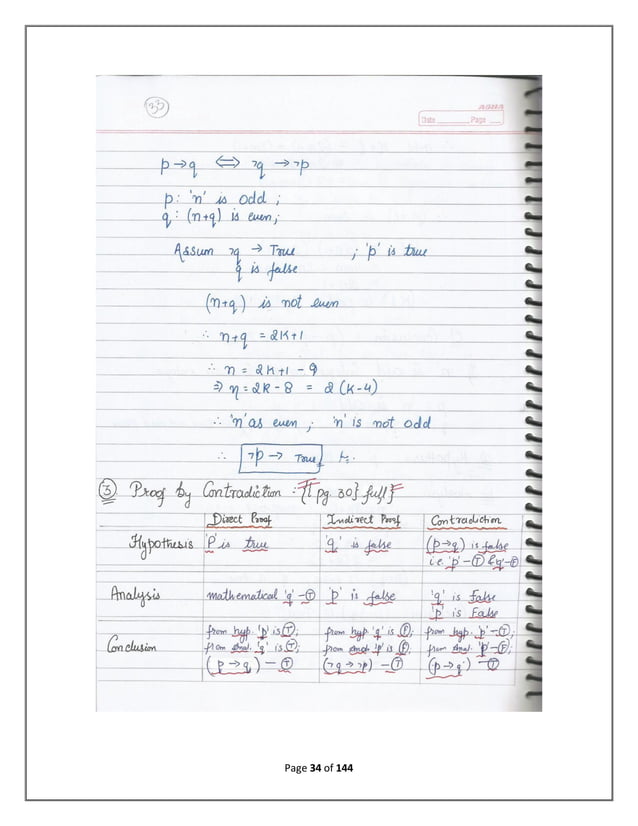 33
AGNA
Date Page
p → q ⟺ ¬q → ¬p
p : 'n' is odd ;
q : (n+9) is even ;
Assum ¬q → True ; 'p' is true
q is false
(n+9) is not even
∴ n+9 = 2K+1
∴ n = 2K+1 - 9
⇒ n = 2K - 8 = 2(K-4)
∴ 'n' as even ; 'n' is not odd
∴ ¬p → True
③ Proof by Contradiction : {[pg. 30} full}
Direct Proof Indirect Proof Contradiction
Hypothesis 'P' is true 'q' is false (p→q) is false
i.e. 'p' – T & 'q' – F
Analysis mathematical 'q' – T 'p' is false 'q' is False
'p' is False
from hyp. 'p' is T; from hyp 'q' is F; from hyp. 'p' – T;
Conclusion from anal. 'q' is T; from anal 'p' is F; from anal. 'p' – F;
(p → q) – T (¬q → ¬p) – T (p → q) – T
Page 34 of 144